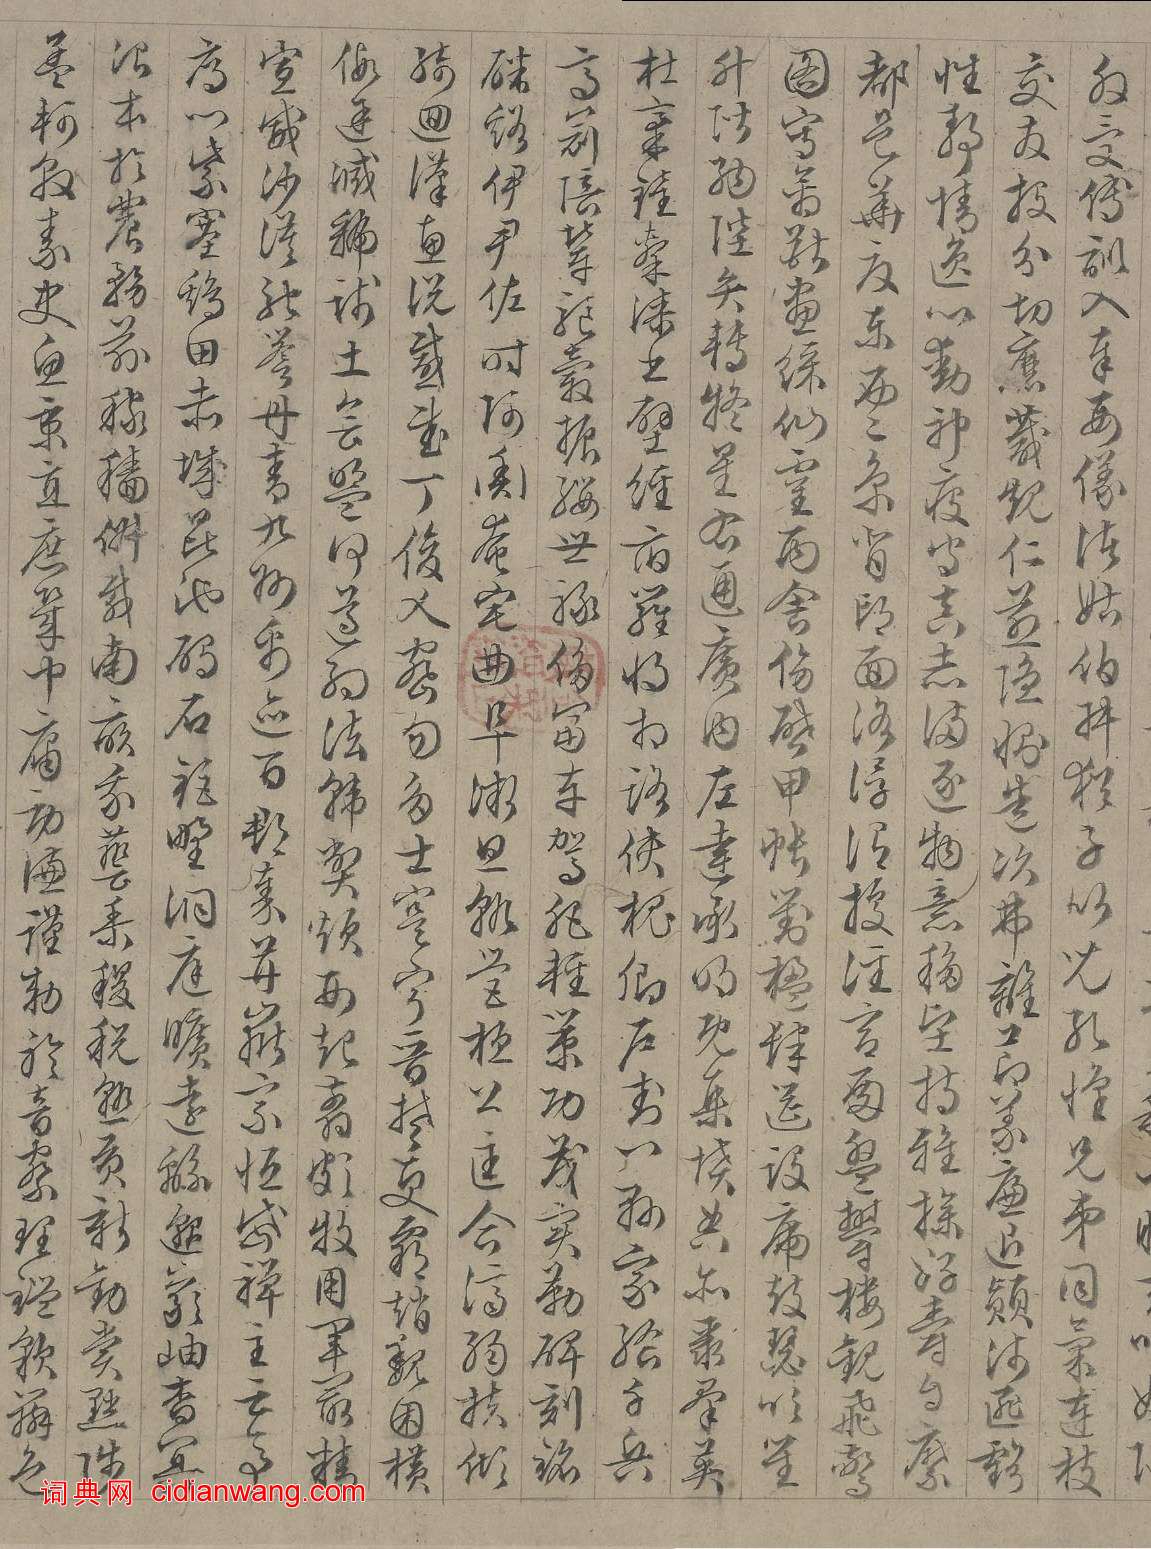 外受傅訓入奉母儀諸姑伯叔猶子比兒孔懷兄弟同氣連枝
交友投分切磨箴規仁慈隱惻造次弗離節義廉退顛沛匪虧
性靜情逸心動神疲守真志滿逐物意移堅持雅操好爵自縻
都邑華夏東西二京背邙面洛浮渭據涇宮殿盤鬱樓觀飛驚
圖寫禽獸畫綵仙靈丙舍傍啟甲帳對楹肆筵設席鼓瑟吹笙
升階納陛弁轉疑星右通廣內左達承明既集墳典亦聚群英
杜稾鍾隸漆書壁經府羅將相路俠槐卿戶封八縣家給千兵
高冠陪輦驅轂振纓世祿侈富車駕肥輕策功茂實勒碑刻銘
磻溪伊尹佐時阿衡奄宅曲阜微旦孰營桓公匡合濟弱扶傾
綺迴漢惠說感武丁俊乂密勿多士寔寧晉楚更霸趙魏困橫
假途滅虢踐土會盟何遵約法韓弊煩刑起翦頗牧用軍最精
宣威沙漠馳譽丹青九州禹跡百郡秦并嶽宗恒岱禪主云亭
雁門紫塞雞田赤城昆池碣石鉅野洞庭曠遠綿邈巖岫杳冥
治本於農務茲稼穡俶載南畝我藝黍稷稅熟貢新勸賞黜陟
孟軻敦素史魚秉直庶幾中庸勞謙謹勑聆音察理鑑貌辨色
词典网 cidianwang.com